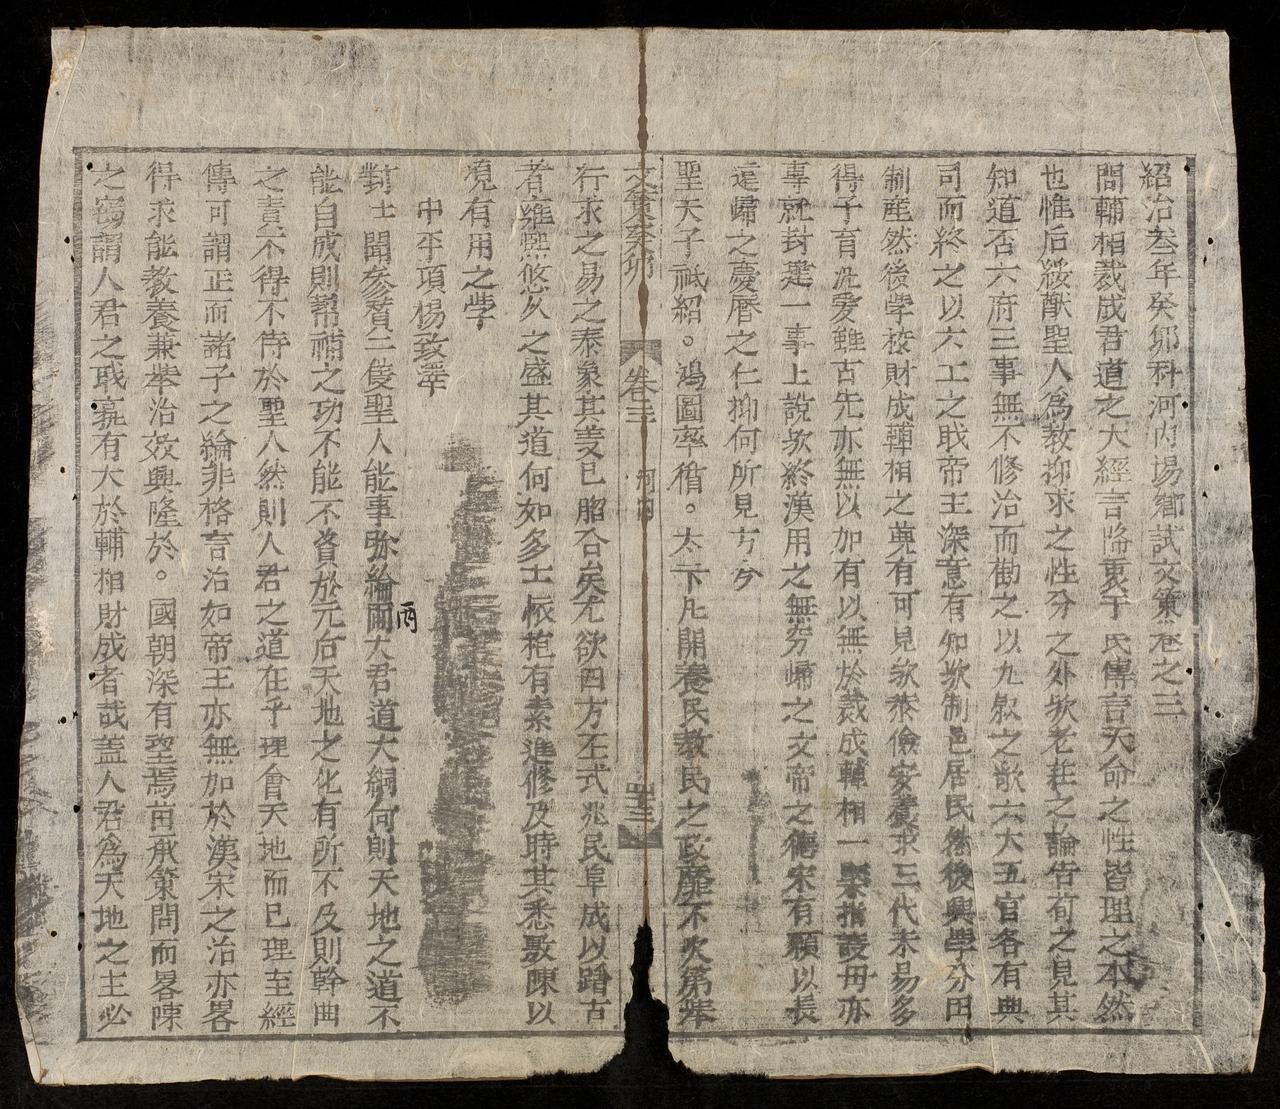 紹治叁年癸卯科河内場鄉試文策卷之三
問輔相裁成君道之大經言降衷于民傳言天命之性皆理之本然
也惟后綏猷聖人爲教抑求之性分之外欤老荘之論告荀之見其
知道否六府三事無不修治而勸之以九叙之歌六大五官各有典
司而終之以六工之戝帝王深意有知欤制邑居民然後興學分田
制産然後學校財成輔相之蒐有可見欤恭儉安養求三代未易多
得子育汎愛雖古先亦無以加有以無於裁成輔相一槩指議毋亦
事就封建一事上說欤終漢用之無穷歸之文帝之德宋有願以長
逺歸之慶曆之仁抑何所見方今
聖天子祗紹。鴻圖率循。太下凡開養民教民之政靡不次第举
文策癸卯 卷三 河内 四十三
行求之易之泰象其差已脗合矣尤欲四方丕式兆民阜成以躋古
者雍熙悠久之盛其道何如多士抱有素進修及時其悉敷陳以
覘有用之學
中平項楊致澤
對士聞參賛三儀聖人能事弥綸兩大君道大綱何則天地之道不
能自成則幇補之功不能不資於元后天地之化有所不及則幹曲
之責不得不待於聖人然則人君之道在乎理會天地而已理至經
傳可謂正而諸子之綸非格言治如帝王亦無加於漢宋之治亦畧
得求能教養兼举治效興隆於。國朝深有望焉茲承策問而畧陳
之窃謂人君之戝寡有大於輔相財成者哉盖人君爲天地之主必